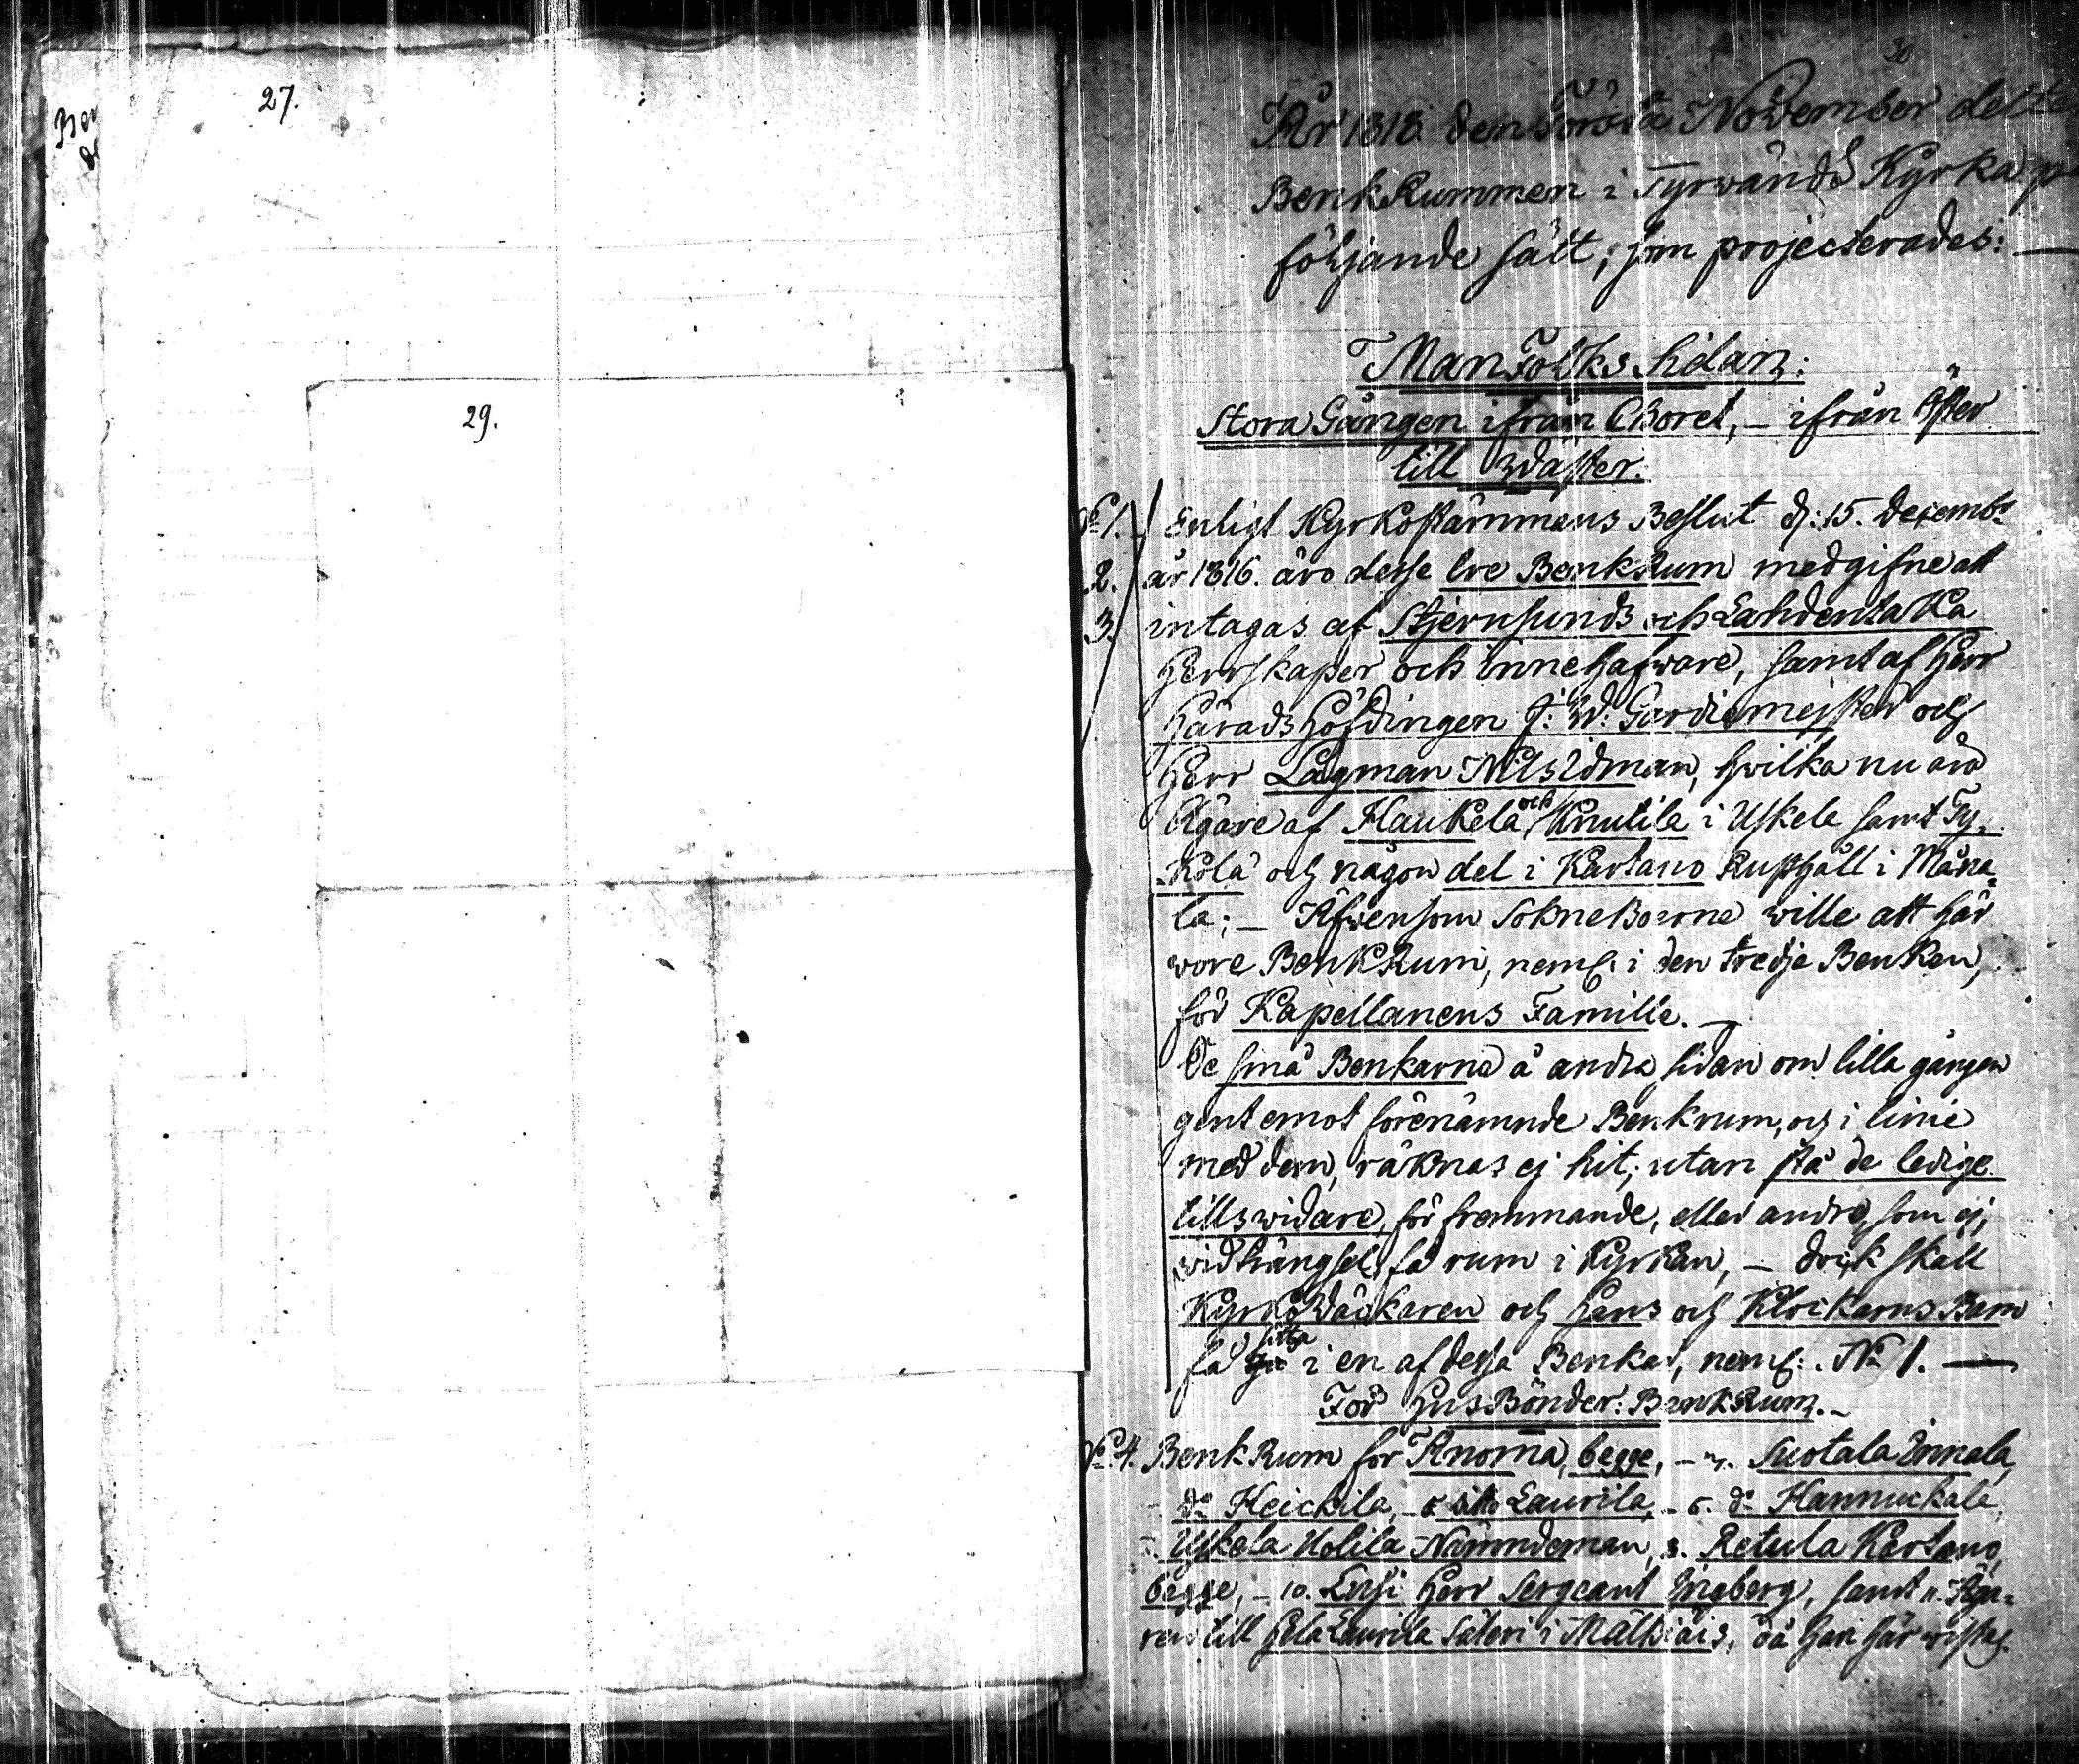 27.
29.
30
År 1818 den Första November deltes
BenkRummen i Tyrwändä Kyrka på
följande sätt, som projecterades: —
ManFolks Sidan:
Stora Gången ifrån Choret, — ifrån Öster
till Wäster.
No 1. Enligt Kyrkostämmans Beslut d: 15. Decembr
2. år 1816. äro desse tre BenkRum medgifne att
3. intagas af Stjernsunds och Lahdentaka
Herrskaper och innehafware, samt af Herr
HäradsHöfdingen J: W: Gardiemeister och
Herr Lagman Nils Idman, hwilka nu äro
Ägare af Haukela och Knutila i Uskela samt Ty-
kolä och någon del i Kartano Rusthåll i Mära-
la; — Äfwensom SokneBoerne wille att här
wore BenkRum, neml. i den tredje Benken,
för Kapellanens Famille. —
De små Benkarne å andra sidan om lilla gången
gent emot förenämnde Benkrum, och i linie
med dem, räknas ej hit; utan stå de ledige
tillswidare, för frommande, eller andre, som ej,
wid trängsel, få rum i Kyrkan, — dock skall
KyrkoWäckaren och Hans och Klockarns Barn
få sitta i en af dessa Benkar, neml: No 1. —
För HusBönder: BenkRum. —
No 4. BenkRum för Knorna, begge, — Suotala Ennala,
do Heickila, — 5 ditto Laurila, — 6. do Hannuckala,
Uskela Uolila Nämndeman, 8. Retula Kartano,
begge, — 10. Ensi Herr Sergeant Engberg, samt 11. Äga-
ren till hela Laurila Säteri i Mälkiäis, då han här wistas.